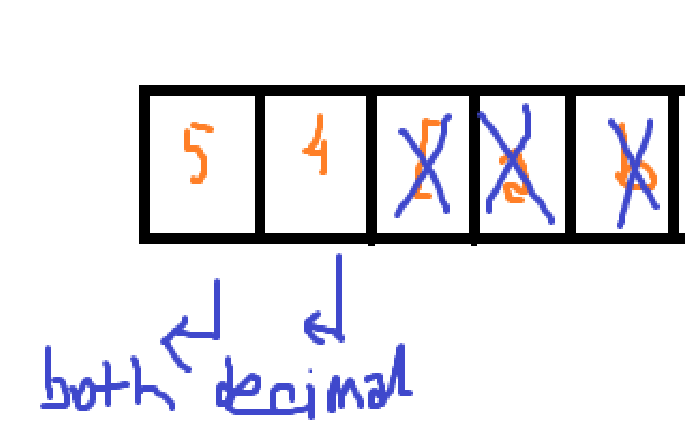 5 4 [ a b
both decimal